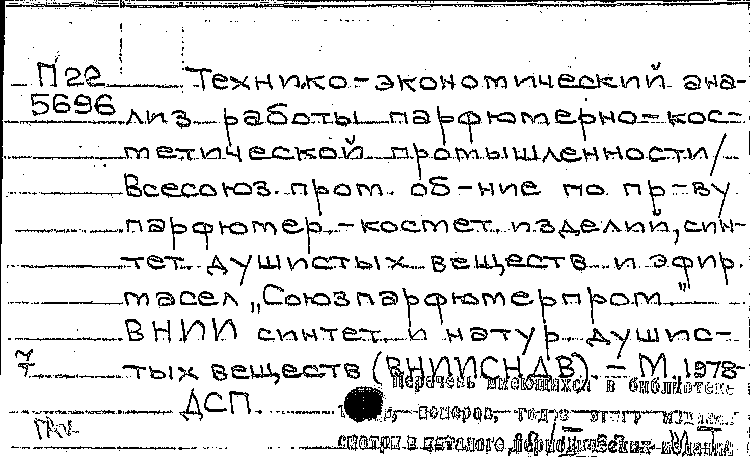 П22 Технико-экономический ана-
5696 лиз работы парфюмерно-кос-
метической промышленности/
Всесоюз. пром. об-ние по пр-ву
парфюмер.-космет. изделий, син-
тет. душистых веществ и эфир.
масел „Союзпарфюмерпром."
ВНИИ синтет. и натур. душис-
тых веществ (ВНИИСНДВ). – М., 1978-
Перечень имеющихся в библиотеке
ДСП. номеров, годов этого издания
смотри в каталоге периодических изданий